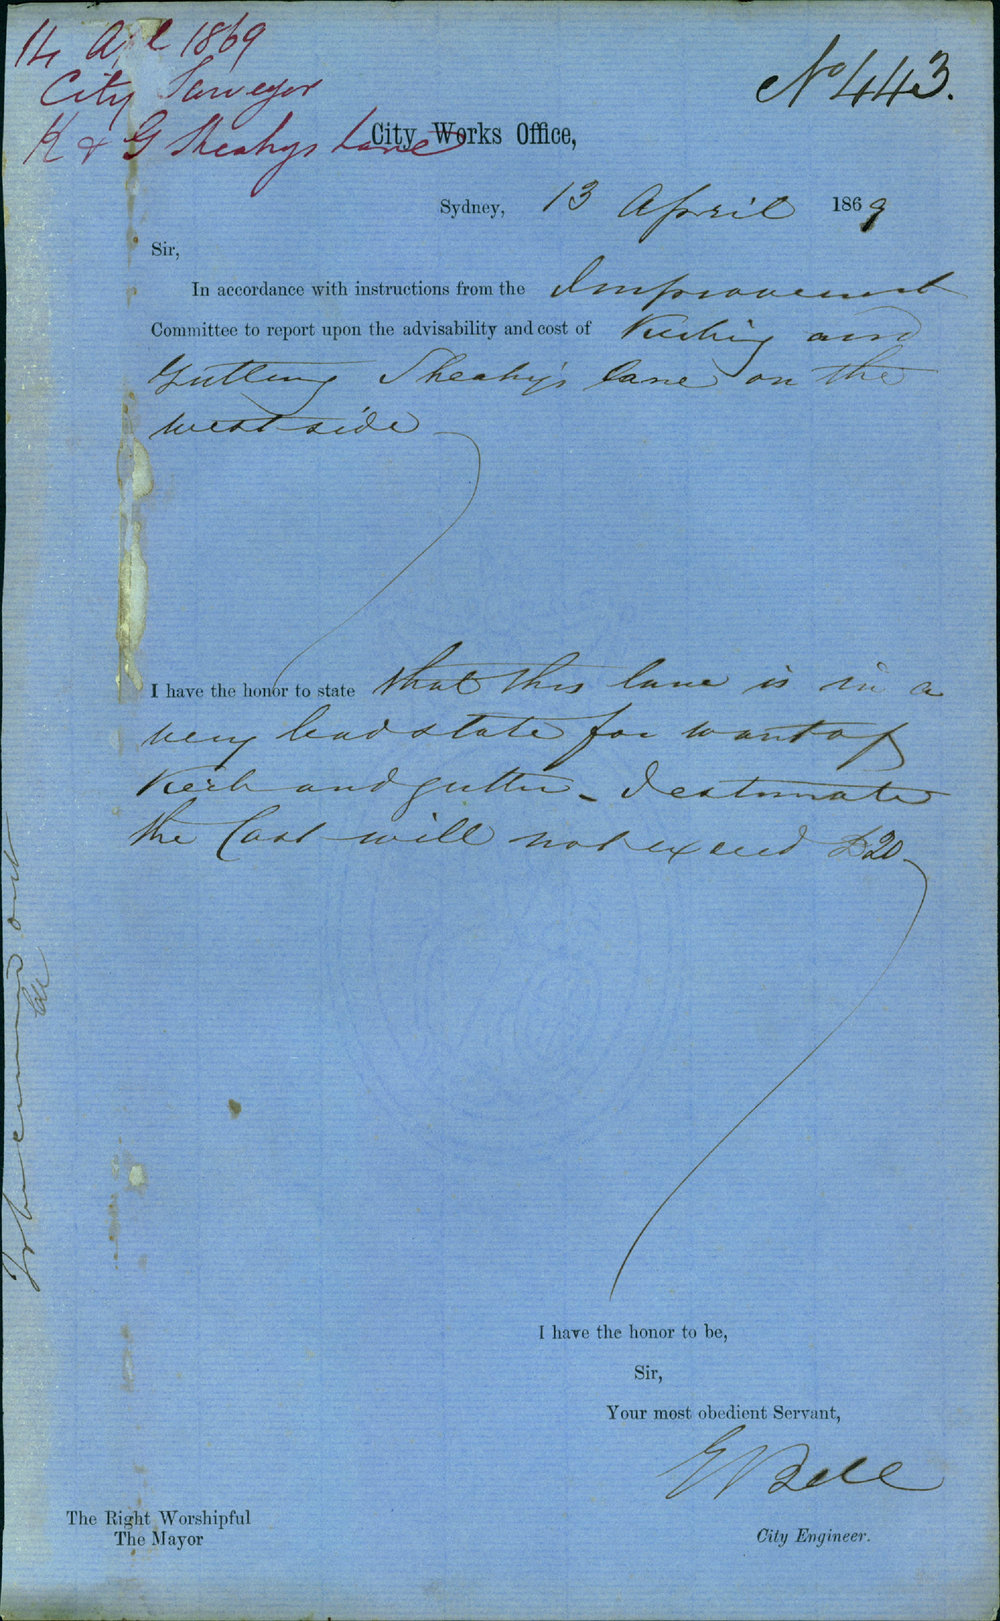 14 Apl 1869
City Surveyor
K & G Sheahys Lane
No 443.
City Works Office,
Sydney, 13 April 1869
Sir,
In accordance with instructions from the Improvement
Committee to report upon the advisability and cost of Kerbing and
Guttering Sheahy's lane on the
west side
I have the honor to state that this lane is in a
very bad state for want of
Kerb and gutter - I estimate
the Cost will not exceed £20
To be carried out
I have the honor to be,
Sir,
Your most obedient Servant,
E Bell
City Engineer.
The Right Worshipful
The Mayor